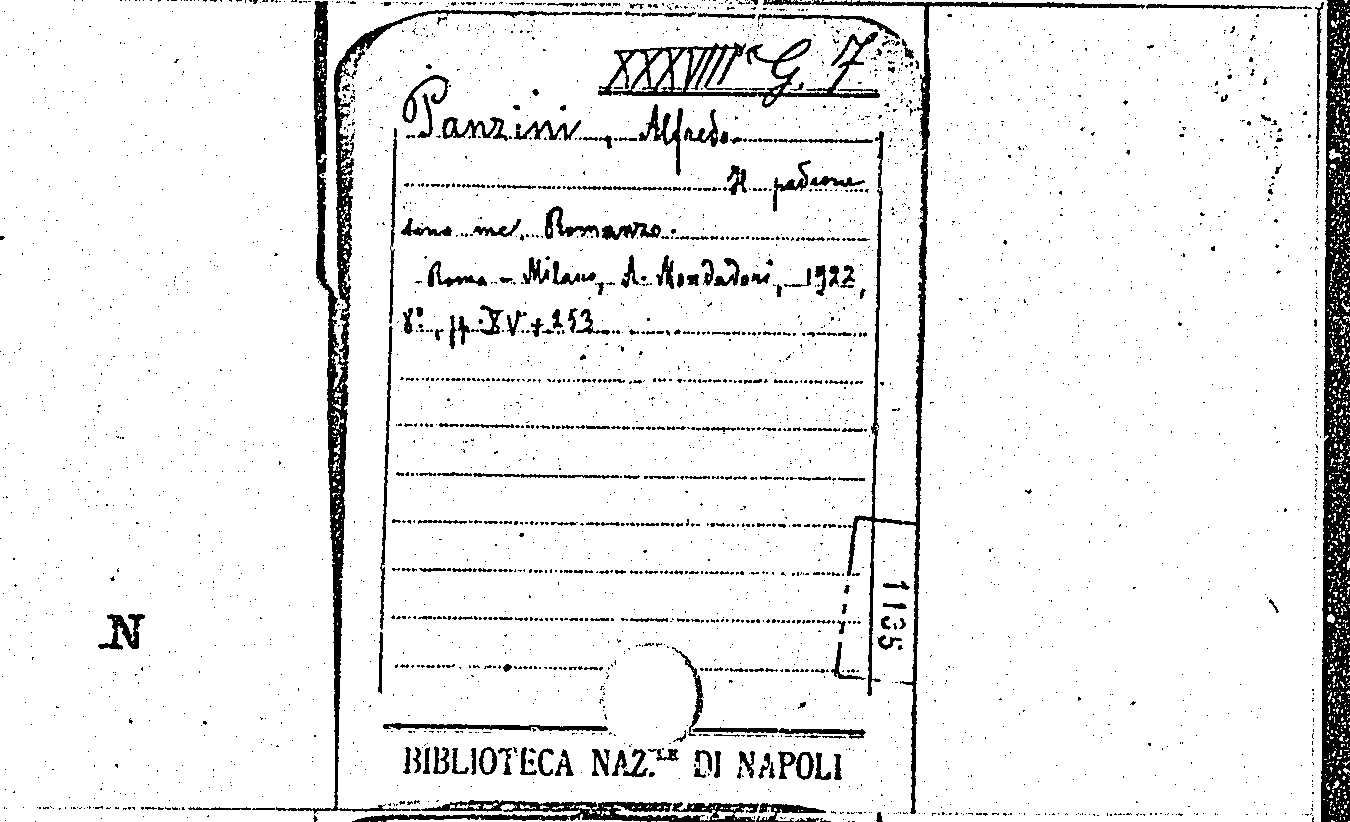 XXXVIII G. 7
Panzini, Alfredo.
Il padrone
sono me!. Romanzo.
Roma - Milano, A. Mondadori, 1922,
8°, pp. XV + 253
1135
N
BIBLIOTECA NAZ.LE DI NAPOLI